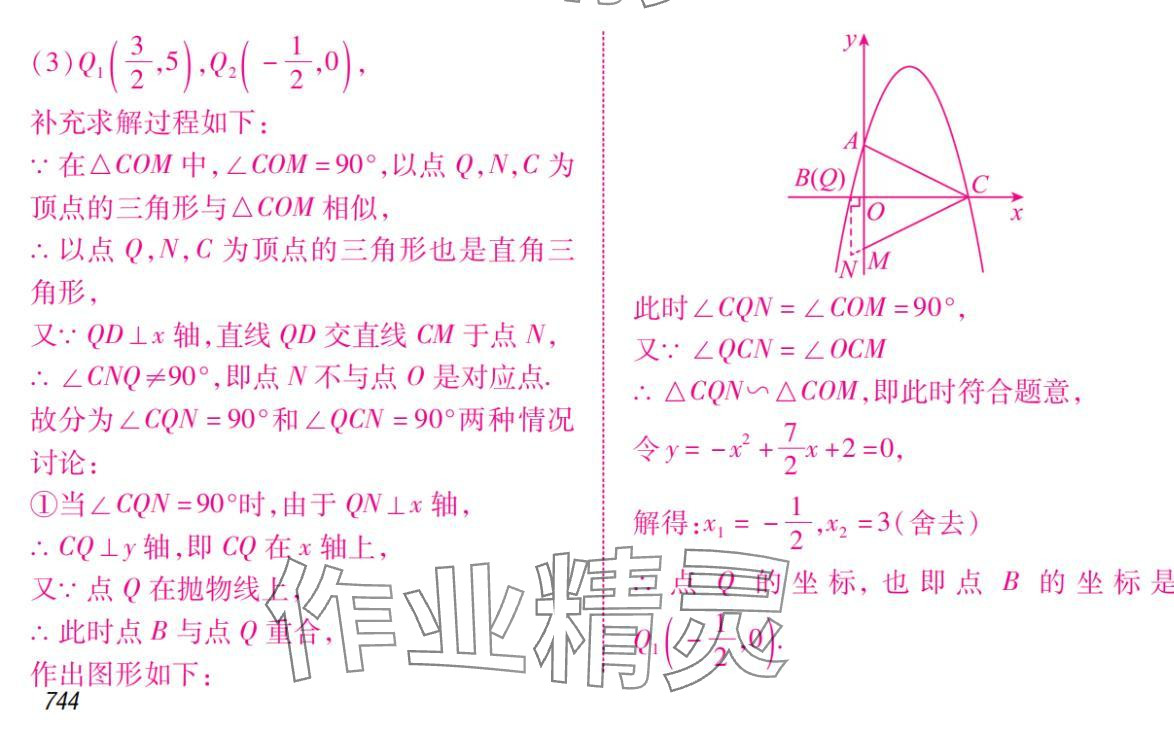 (3)Q₁(3/2,5),Q₂(-1/2,0),
补充求解过程如下:
∵在△COM中,∠COM=90°,以点Q,N,C为
顶点的三角形与△COM相似,
∴以点Q,N,C为顶点的三角形也是直角三
角形,
又∵QD⊥x轴,直线QD交直线CM于点N,
∴∠CNQ≠90°,即点N不与点O是对应点.
故分为∠CQN=90°和∠QCN=90°两种情况
讨论:
①当∠CQN=90°时,由于QN⊥x轴,
∴CQ⊥y轴,即CQ在x轴上,
又∵点Q在抛物线上,
∴此时点B与点Q重合,
作出图形如下:
744
y
A
B(Q)
C
O
x
N
M
此时∠CQN=∠COM=90°,
又∵∠QCN=∠OCM
∴△CQN∽△COM,即此时符合题意,
令y=-x²+7/2x+2=0,
解得:x₁=-1/2,x₂=3(舍去)
∴点Q的坐标,也即点B的坐标是
Q₁(-1/2,0).
作业精灵